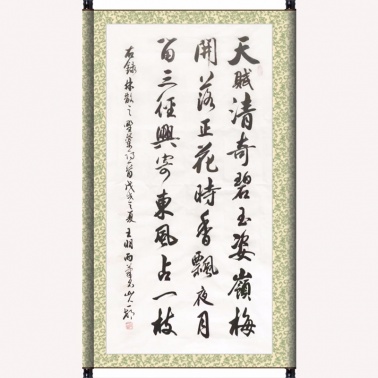 天賦清奇碧玉姿嶺梅
開落正花時香飄夜月
留三徑興寄東風占一枝
右錄林散之 戊戌之夏 王明